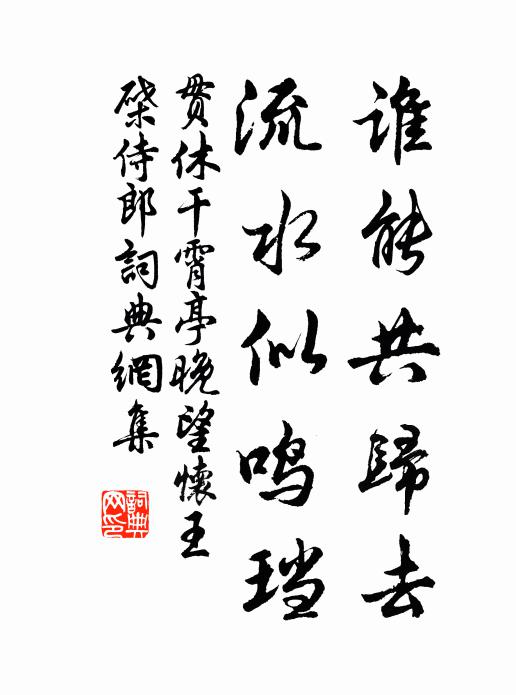 谁能共歸去
流水似鳴珰
贯休干霄亭晚望懷王
棨侍郎詞典網集
詞典网印